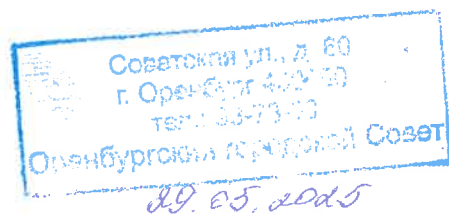 Советская ул., д. 60
г. Оренбург
тел.:
Оренбургский городской Совет
29.05.2025